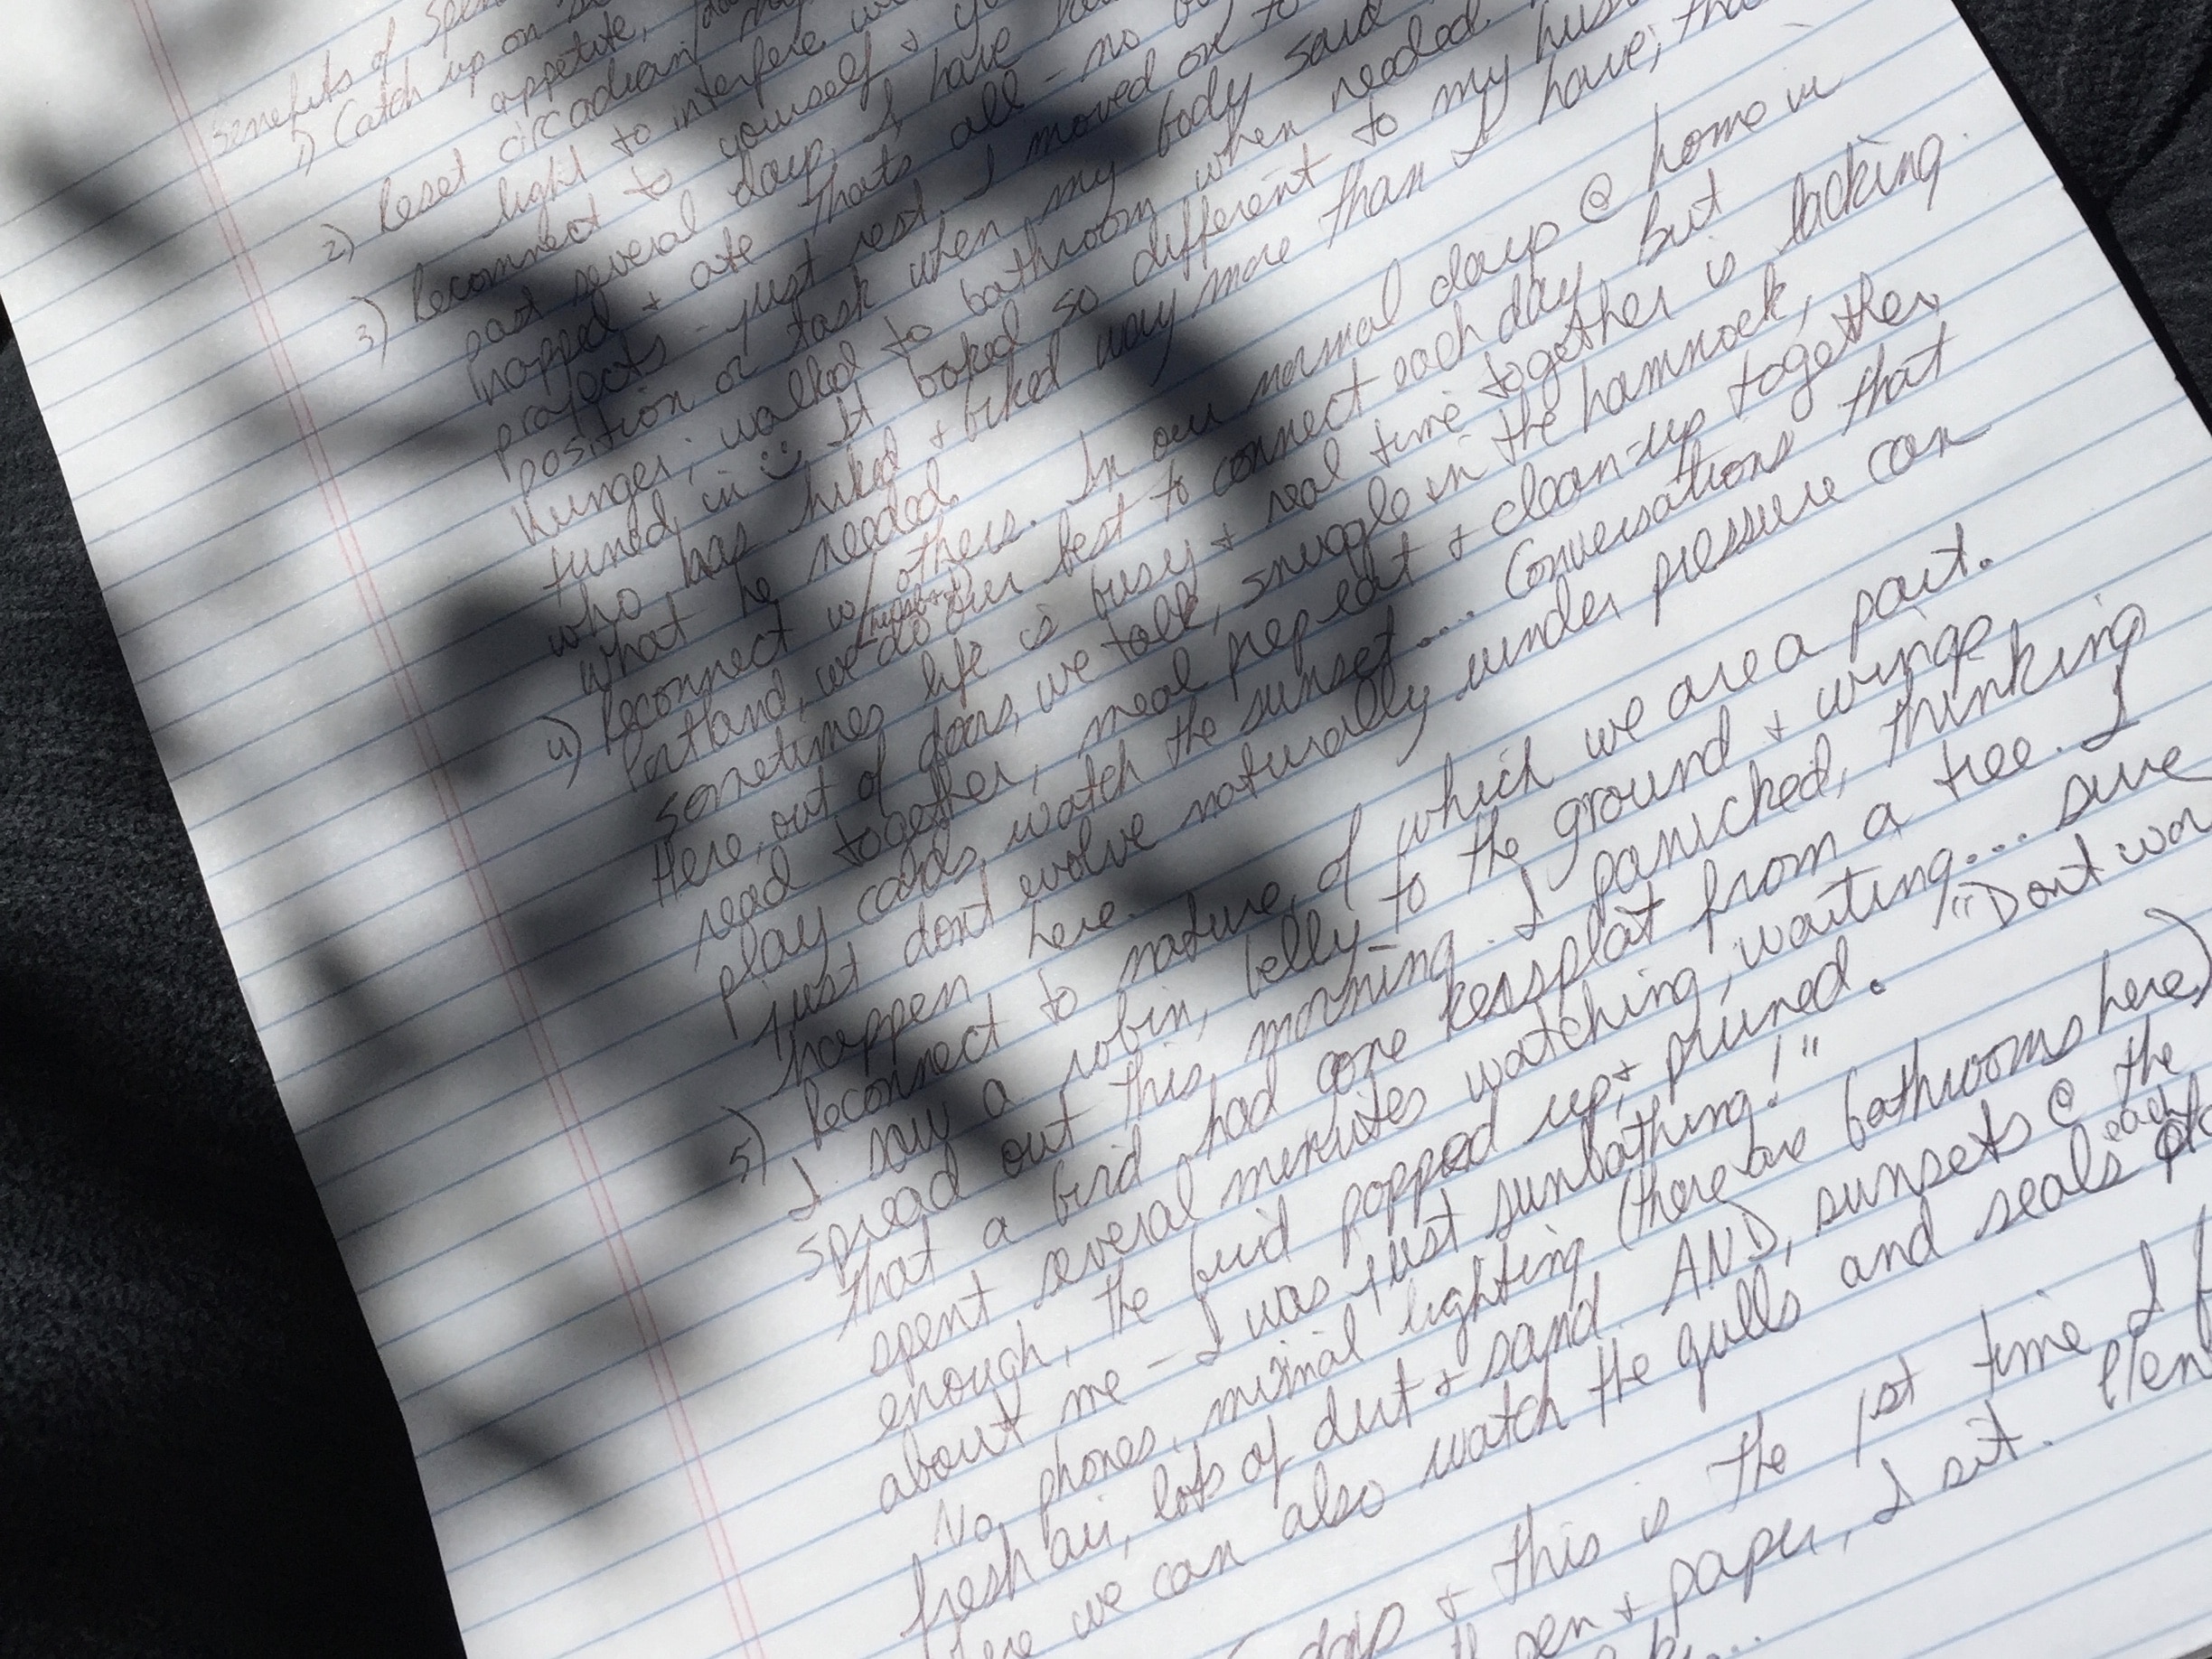 Benefits of
1) Catch up on
appetite,
2) Reset circadian
light to interfere
3) Reconnect to yourself +
past several days, I have
napped + ate. Thats all - no
projects - just rest. I moved on to
position or task when my body said
hunger; walked to bathroom when needed.
tuned in ☺ It looked so different to my
who has hiked + biked way more than I have; tha
what he needed.
4) Reconnect w/ others. In our normal days @ home in
/husband
Portland, we do our best to connect each day but
sometimes life is busy + real time together is lacking.
Here, out of doors, we talk, snuggle in the hammock,
read together, meal prep eat + clean-up together,
play cards, watch the sunset.... Conversations that
just dont evolve naturally under pressure can
happen here.
5) Reconnect to nature, of which we are a part.
I saw a robin, belly to the ground + wings
spread out this morning. I panicked, thinking
that a bird had gone kersplat from a tree. I
spent several minutes watching, waiting... sure
enough, the bird popped up + pruned. "Dont wor
about me - I was just sunbathing!"
No phones, minimal lighting (there are bathrooms here)
fresh air, lots of dirt + sand. AND, sunsets @ the
each
we can also watch the gulls and seals
days + this is the 1st time I
pen + paper, I sit.